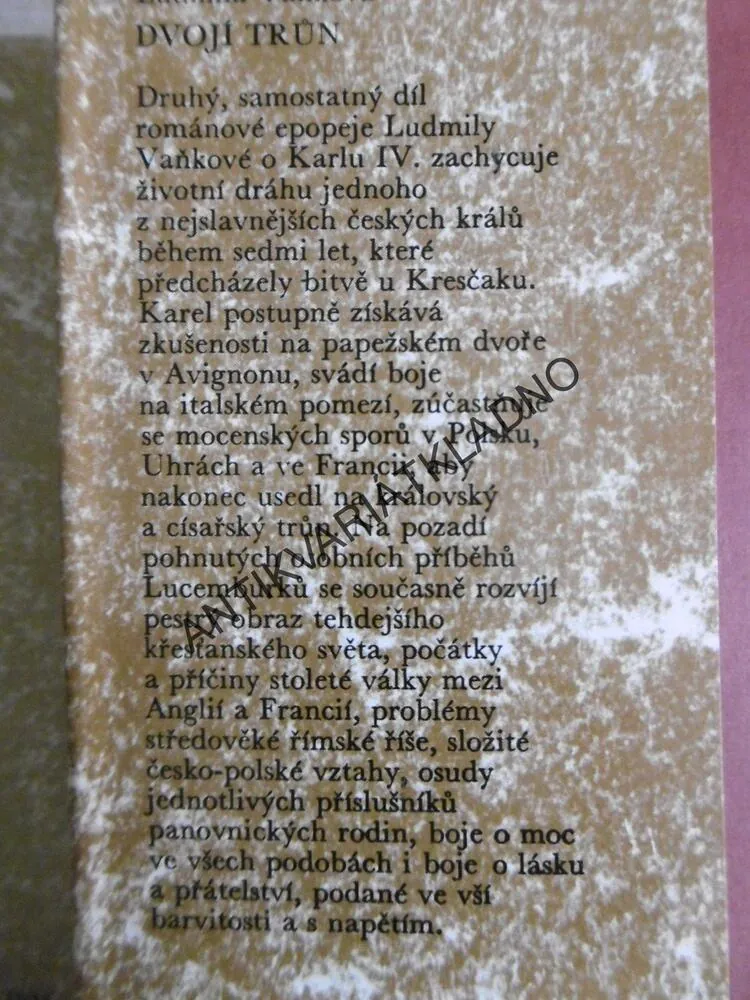 DVOJÍ TRŮN
Druhý, samostatný díl
románové epopeje Ludmily
Vaňkové o Karlu IV. zachycuje
životní dráhu jednoho
z nejslavnějších českých králů
během sedmi let, které
předcházely bitvě u Kresčaku.
Karel postupně získává
zkušenosti na papežském dvoře
v Avignonu, svádí boje
na italském pomezí, zúčastňuje
se mocenských sporů v Polsku,
Uhrách a ve Francii, aby
nakonec usedl na královský
a císařský trůn. Na pozadí
pohnutých osobních příběhů
Lucemburků se současně rozvíjí
pestrý obraz tehdejšího
křesťanského světa, počátky
a příčiny stoleté války mezi
Anglií a Francií, problémy
středověké římské říše, složité
česko-polské vztahy, osudy
jednotlivých příslušníků
panovnických rodin, boje o moc
ve všech podobách i boje o lásku
a přátelství, podané ve vší
barvitosti a s napětím.
ANTIKVARIÁTKLADNO